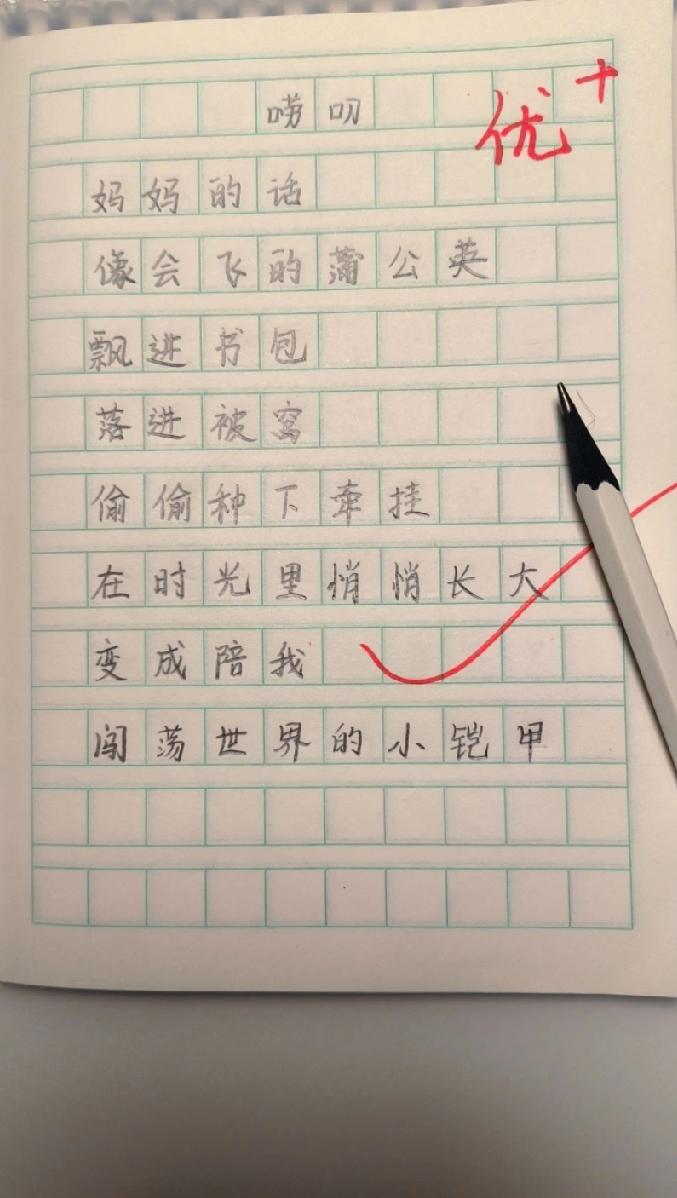 唠叨
优+
妈妈的话
像会飞的蒲公英
飘进书包
落进被窝
偷偷种下牵挂
在时光里悄悄长大
变成陪我
闯荡世界的小铠甲